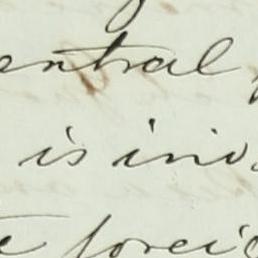 entral
is ino
foreig